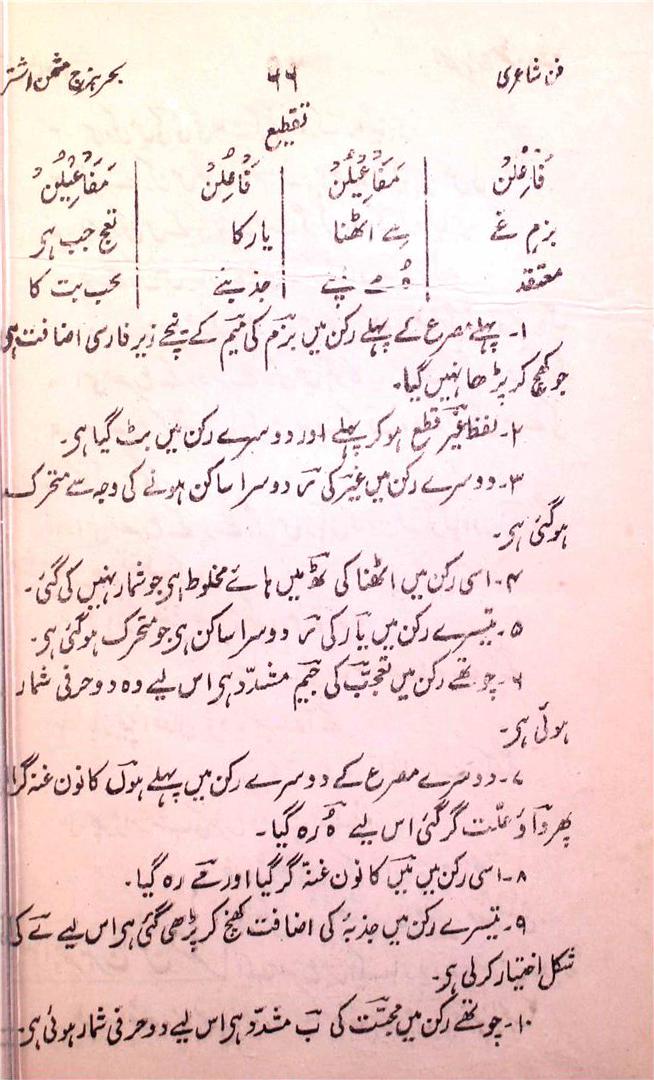 فن شاعری ۶۶ بحر ہزج مثمن اشتر
تقطیع
فَاعِلُنْ | مَفَاعِیْلُنْ | فَاعِلُنْ | مَفَاعِیْلُنْ
بزمِ غے | رِ سے اٹھنا | یار کا | تعج جب ہر
معتقد | ہُ مے نپے | جذبئے | محب بت کا
۱۔ پہلے مصرع کے پہلے رکن میں بزم کی میم کے نیچے زیر فارسی اضافت ہی
جو کھچ کر پڑھا نہیں گیا۔
۲۔ لفظ غیر قطع ہو کر پہلے اور دوسرے رکن میں بٹ گیا ہی۔
۳۔ دوسرے رکن میں غیر کی ر دوسرا ساکن ہونے کی وجہ سے متحرک
ہو گئی ہی۔
۴۔ اسی رکن میں اٹھنا کی ٹھ میں ہائے مخلوط ہی جو شمار نہیں کی گئی۔
۵۔ تیسرے رکن میں یار کی ر دوسرا ساکن ہی جو متحرک ہو گئی ہی۔
۶۔ چوتھے رکن میں تعجب کی جیم مشدّد ہی اس لیے وہ دو حرفی شمار
ہوئی ہی۔
۷۔ دوسرے مصرع کے دوسرے رکن میں پہلے ہوں کا نون غنہ گرا
پھر واوِ علّت گر گئی اس لیے ہُ رہ گیا۔
۸۔ اسی رکن میں میں کا نون غنہ گر گیا اور مے رہ گیا۔
۹۔ تیسرے رکن میں جذبۂ کی اضافت کھنچ کر پڑھی گئی ہی اس لیے ے کی
شکل اختیار کر لی ہی۔
۱۰۔ چوتھے رکن میں محبّت کی ب مشدّد ہی اس لیے دو حرفی شمار ہوئی ہی۔